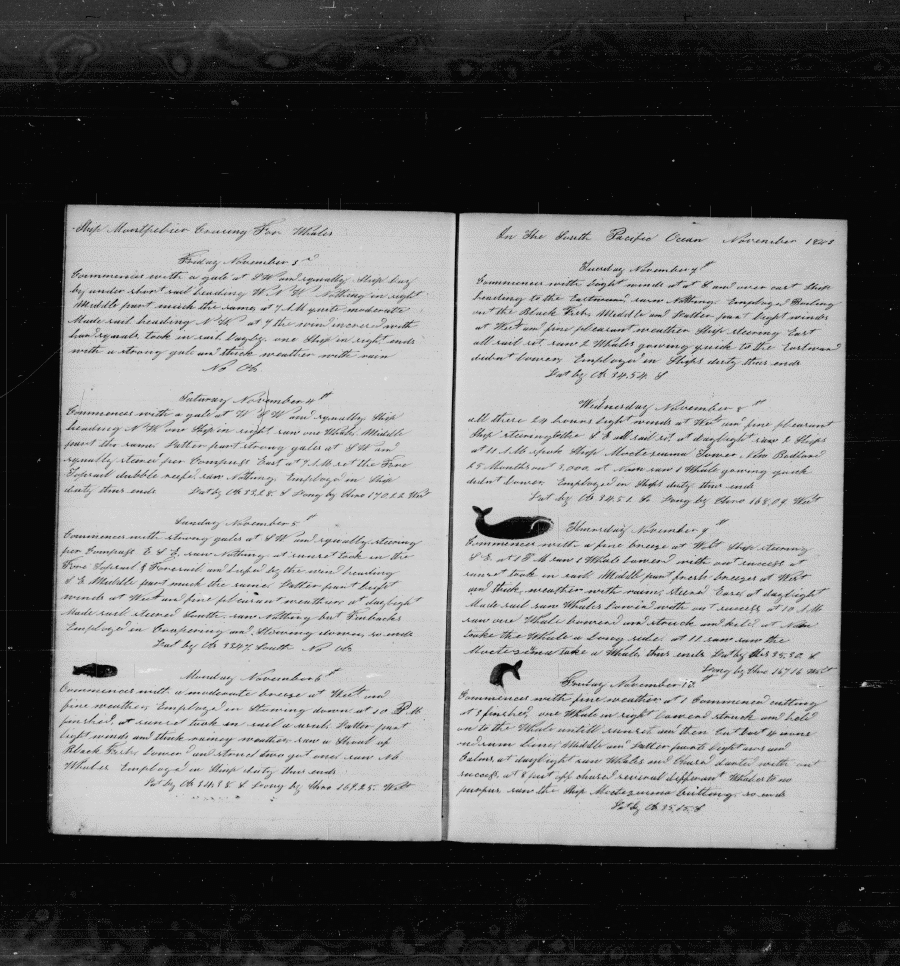 Ship Montpelier Crusing For Whales
Friday November 3d
Commences with a gale at SW and squally Ship lay
by under short sail heading W.N.W. Nothing in sight
Middle part much the same at 7 A.M quite moderate
Made sail heading N.W. at 9 the wind incresed with
hard squals took in sail Dagley one Ship in sight ends
with a strong gale and thick weather with rain
No Ob
Saturday November 4th
Commences with a gale at W S W and squally Ship
heading N W one Ship in sight saw one Whale Middle
part the same Latter part strong gales at S W and
squally steered per Compass East at 7 A.M set the Fore
Topsail dubble reefed saw Nothing Employed in Ship
duty thus ends Lat by Ob 33.28. S Long by Chro 170.22 West
Sunday November 5th
Commences with strong gales at S W and squally steering
per Compass E S E. saw Nothing at sunset took in the
Fore Topsail & Foresail and lufed by the wind heading
S E Middle part much the same Latter part light
winds at West and fine pleasant weather at daylight
Made sail steered South saw Nothing but Finbacks
Employed in Coopering and Stowing down, so ends
Lat by Ob 33.47. South No Ob
Monday November 6th
Commences with a moderate breeze at West and
fine weather Employed in Stowing down at 10 P.M.
finished, at sunset took in sail as usual Latter part
light winds and thick rainey weather saw a Shoal of
Black Fish Lowered and stoned two got one saw No
Whales Employed in Ship duty thus ends
Lat by Ob 34.38 S Long by Chro 168.25. West
In The South Pacific Ocean November 1848
Tuesday November 7th
Commences with Light winds at S and over cast Ship
heading to the Eastward saw Nothing Employed Boiling
out the Black Fish Middle and Latter part light winds
at West and fine pleasant weather Ship steering East
all sail set saw 2 Whales gowing quick to the Eastward
didnt Lower, Employed in Ships duty thus ends
Lat by Ob 34.54 S
Wednesday November 8th
all these 24 hours light winds at West and fine pleasant
Ship steering the S E all sail set at daylight saw 2 Ships
at 11 A.M spoke Ship Moctezuma Tower New Bedford
25 Months out 2,000, at Noon saw 1 Whale gowing quick
didnt Lower. Employed in Ships duty thus ends
Lat by Ob 34.52 S. Long by Chro 168.04 West
Thursday November 9th
Commences with a fine breeze at West Ship steering
S E. at 1 P M saw 1 Whale Lowerd with out success at
sunset took in sail Middle part fresh breezes at West
and thick weather with rain, steered East at daylight
Made sail saw Whales Lowerd with out success, at 10 A.M
saw one Whale Lowered and struck and kiled at Noon
took the Whale a Long side. at 11 saw saw the
Moctezuma take a Whale thus ends Lat by Ob 35.30 S
Long by Chro 167.16 West
Friday November 10.
Commences with fine weather at 1 Commenced cutting
at 5 finished, one Whale in sight Lowerd struck and held
on to the Whale untill sunset and then Cut Lost 4 irons
and sum Line, Middle and Latter parts light airs and
Calms at daylight saw Whales and chased darted with out
success at 8 part off chased several different Whales to no
purpus saw the Ship Moctezuma Cutting. so ends
Lat by Ob 35.15. S